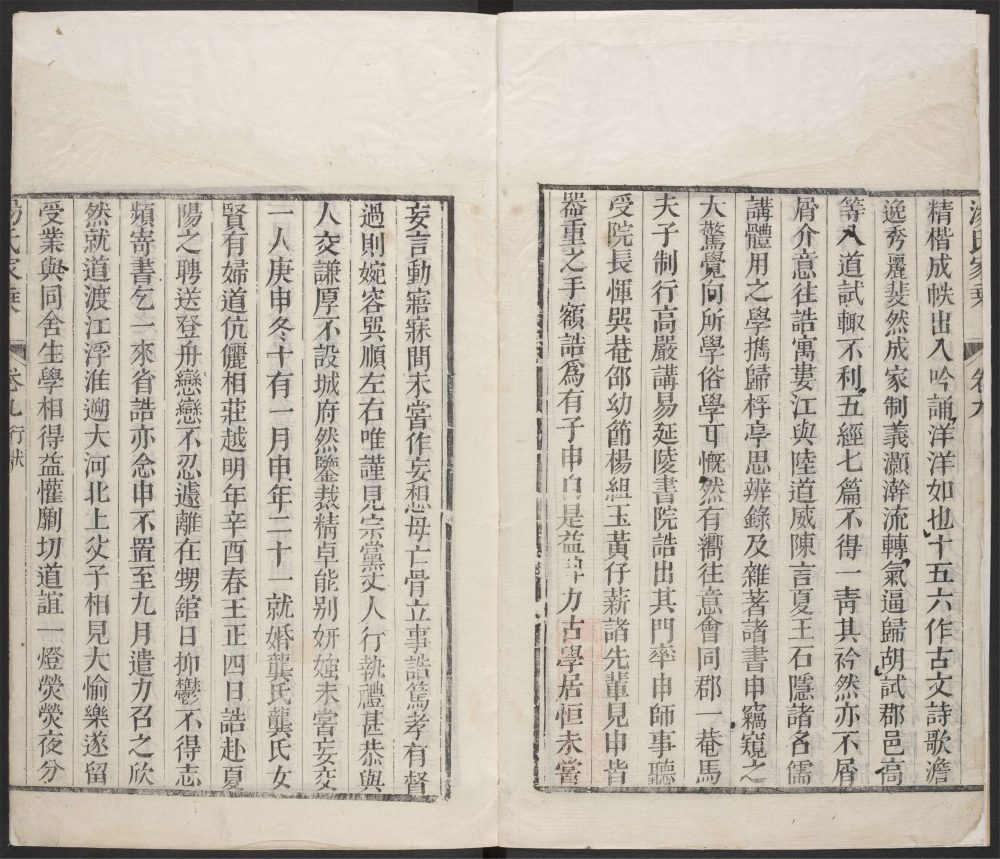 湯氏家乘 卷九
精楷成帙出入吟誦洋洋如也十五六作古文詩歌澹
逸秀麗斐然成家制義灝瀚流轉氣逼歸胡試郡邑高
等入道試輙不利五經七篇不得一靑其衿然亦不屑
屑介意往誥寓婁江與陸道威陳言夏王石隱諸名儒
講體用之學攜歸桴亭思辨錄及雜著諸書申竊窺之
大驚覺向所學俗學耳慨然有嚮往意會同郡一菴馬
夫子制行高嚴講易延陵書院誥出其門率申師事聽
受院長惲巽菴邵幼節楊組玉黃仔薪諸先輩見申皆
器重之手額誥爲有子申自是益肆力古學居恒未嘗
妄言動寤寐間未嘗作妄想母亡骨立事誥篤孝有督
過則婉容巽順左右唯謹見宗黨丈人行執禮甚恭與
人交謙厚不設城府然鑒裁精卓能别妍媸未嘗妄交
一人庚申冬十有一月申年二十一就婚龔氏龔氏女
賢有婦道伉儷相莊越明年辛酉春王正四日誥赴夏
陽之聘送登舟戀戀不忍遽離在甥舘日抑鬱不得志
頻寄書乞一來省誥亦念申不置至九月遣力召之欣
然就道渡江浮淮遡大河北上父子相見大愉樂遂留
受業與同舍生學相得益懽劘切道誼一燈熒熒夜分
湯氏家乘 卷九 行狀